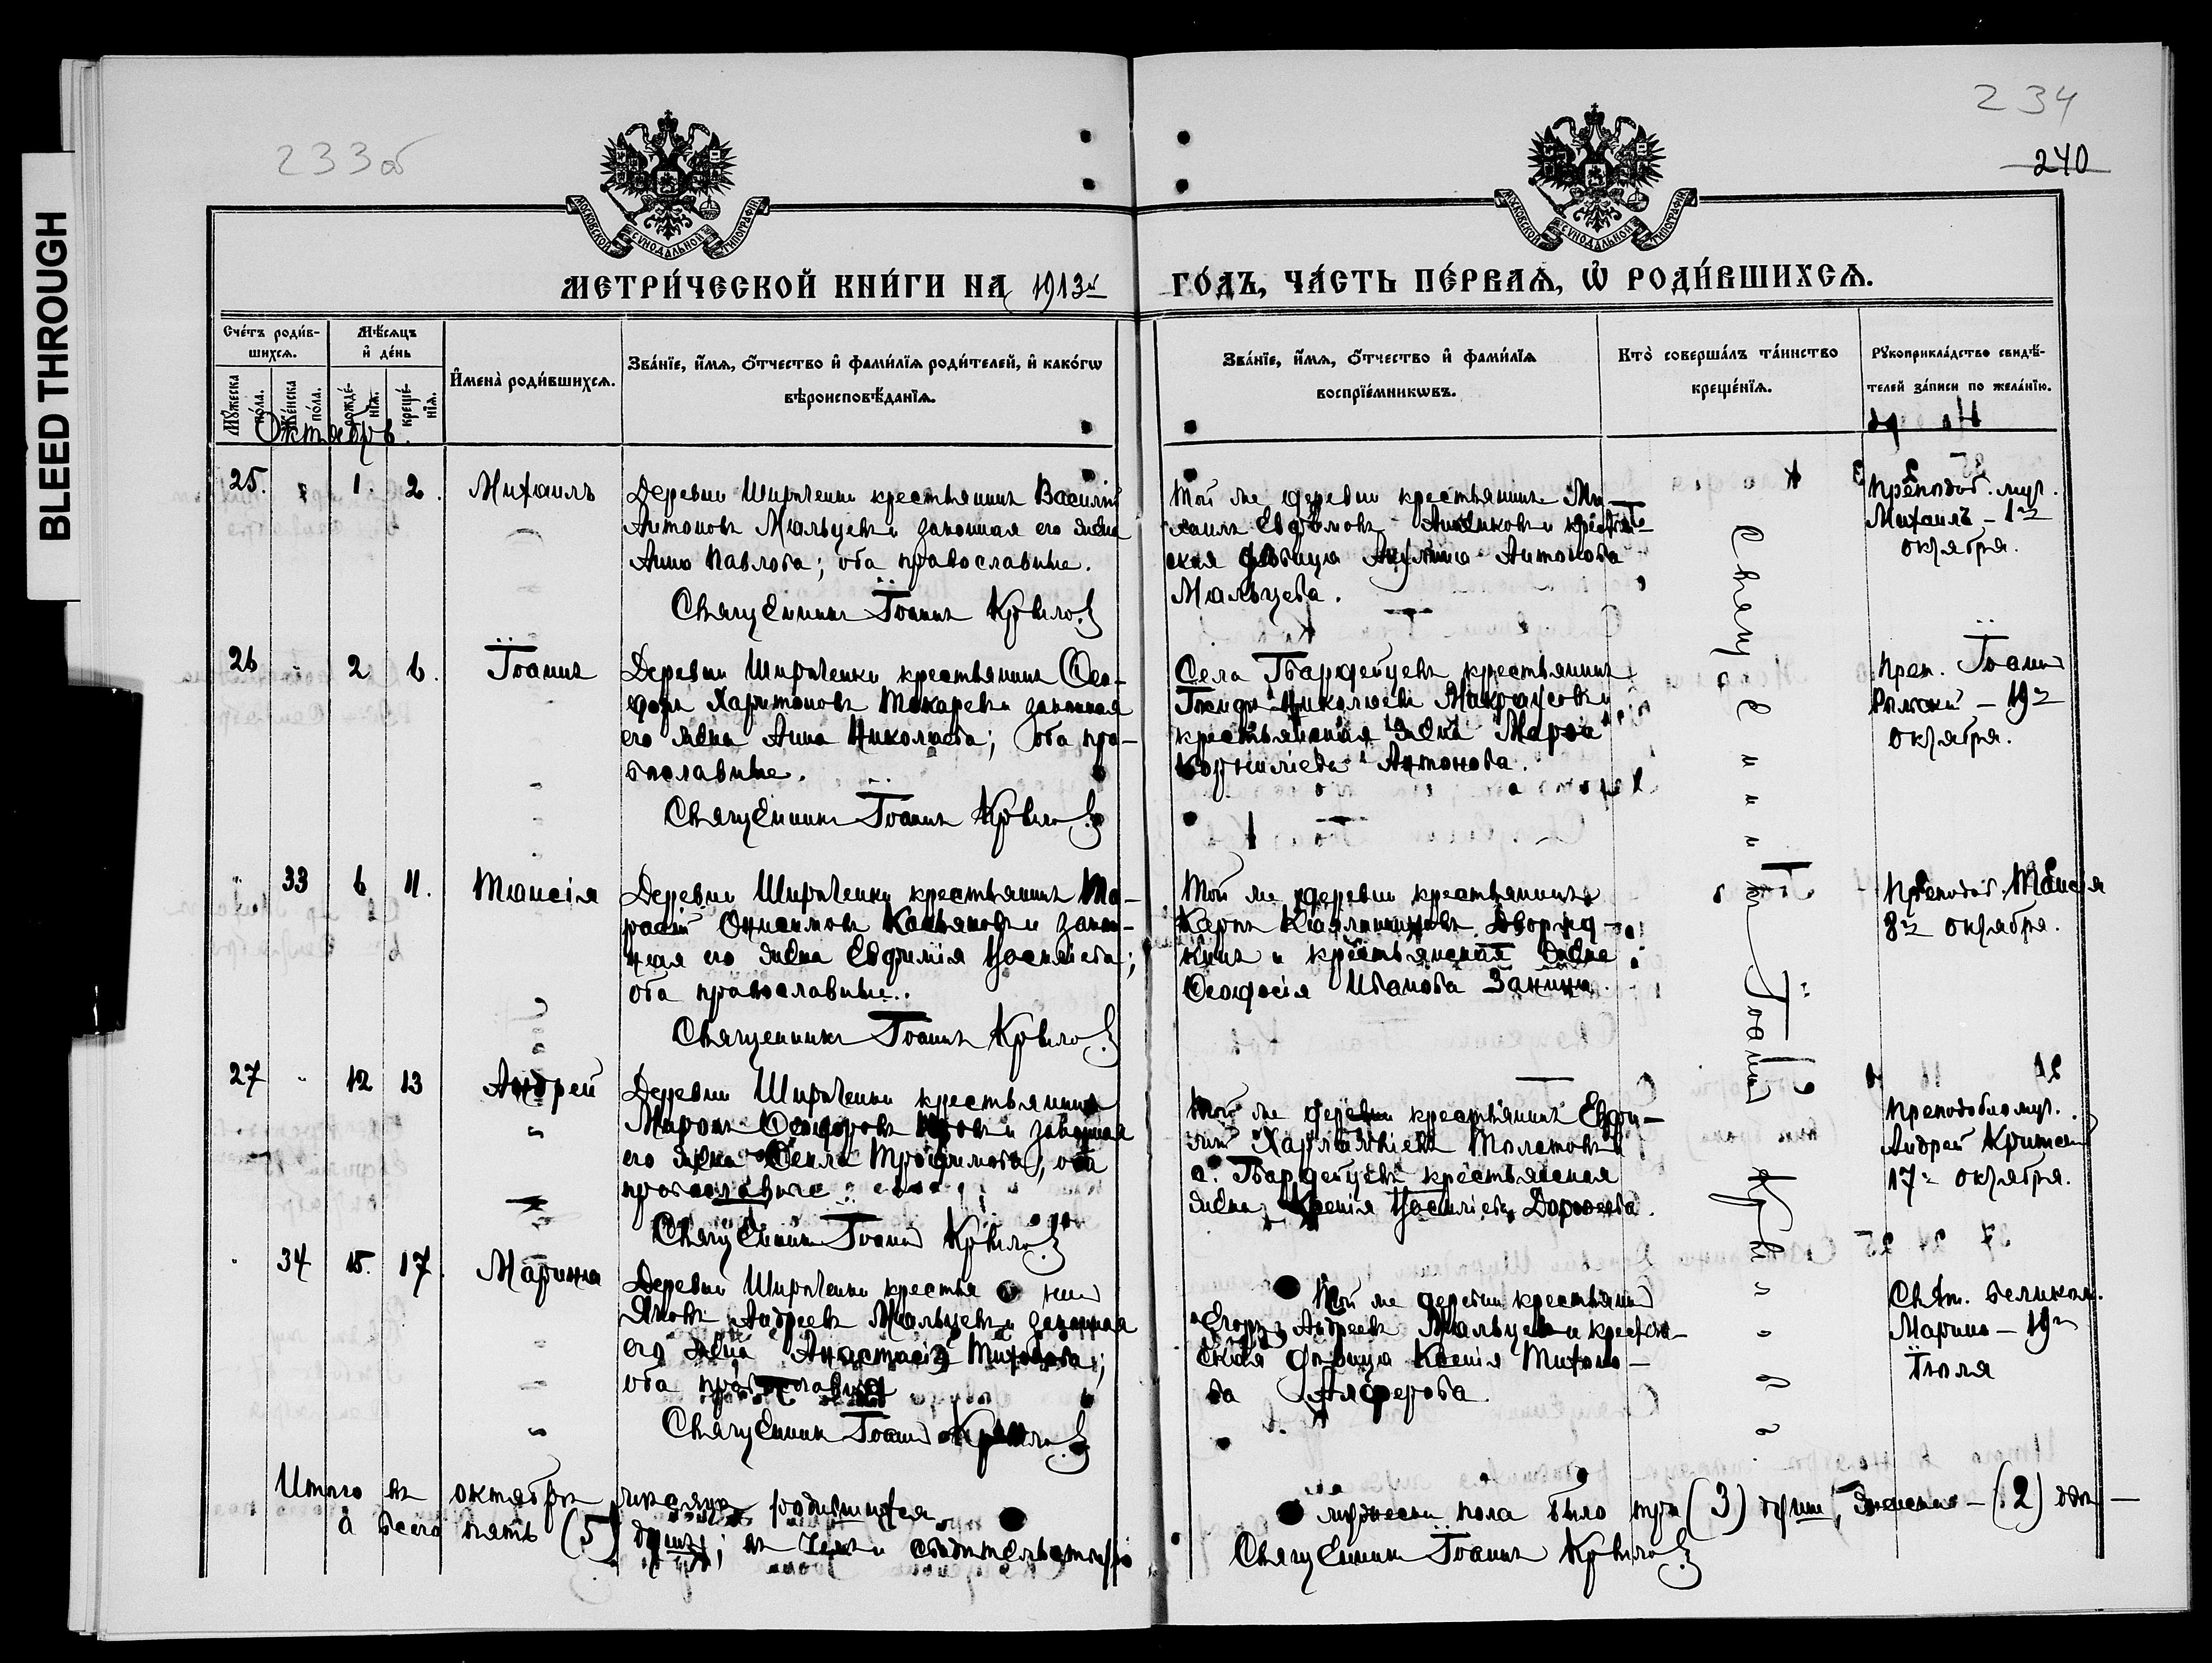 BLEED THROUGH
233об
234
240
МОСКОВСКОЙ СѴНОДАЛЬНОЙ ТИПОГРАФІИ
МОСКОВСКОЙ СѴНОДАЛЬНОЙ ТИПОГРАФІИ
МЕТРИ́ЧЕСКОЙ КНИ́ГИ НА 1913й ГО́ДЪ, ЧА́СТЬ ПЕ́РВАЯ, Ѽ РОДИ́ВШИХСЯ.
Сче́тъ роди́в-
шихся.
Мѣ́сяцъ
и҆ де́нь
Мꙋ́жеска
по́ла.
Же́нска
по́ла.
рожде́-
нїя.
креще́-
нїя.
И҆мена̀ роди́вшихся.
Зва́нїе, и҆́мя, о҆́тчество и҆ фами́лїя роди́телей, и҆ како́гѡ
вѣроисповѣ́данїя.
Зва́нїе, и҆́мя, о҆́тчество и҆ фами́лїя
воспрїе́мникѡвъ.
Кто̀ соверша́лъ та́инство
креще́нїя.
Рꙋкоприкла́дство свидѣ́-
телей за́писи по жела́нїю.
Октябрь.
25. " 1. 2. Михаилъ
Деревни Широченки крестьянинъ Василій
Антоновъ Мальцевъ и законная его жена
Анна Павлова; оба православные.
Священникъ Іоаннъ Крыловъ
Той же деревни крестьянинъ Ми-
хаилъ Евфимовъ и крестьян-
ская дѣвица Акулина Антонова
Мальцева.
Преподоб. муч.
Михаилъ – 1го
октября.
26 " 2 6. Іоаннъ
Деревни Широченки крестьянинъ Ѳео-
доръ Харитоновъ Токаревъ и законная
его жена Анна Николаева; оба пра-
вославные.
Священникъ Іоаннъ Крыловъ
Села Гвардейцевъ крестьянинъ
Николаевъ и
крестьянская жена
Корниліева Антонова.
Преп. Іоаннъ
Рыльскій – 19го
октября.
" 33 6 11. Таисія
Деревни Широченки крестьянинъ Та-
расій Онисимовъ Касьяновъ и закон-
ная его жена Евфимія
оба православные.
Священникъ Іоаннъ Крыловъ
Той же деревни крестьянинъ
Карпъ Дворян-
кинъ и крестьянская жена
Ѳеодосія Иванова Занина.
Преподоб. Таисія
8го октября.
27 " 12 13 Андрей
Деревни Широченки крестьянинъ
Миронъ Ѳеодоровъ и законная
его жена Ѳекла Трофимова; оба
православные
Священникъ Іоаннъ Крыловъ
Той же деревни крестьянинъ Евфи-
мій Харлампіевъ и
с. Гвардейцевъ крестьянская
жена Ксенія Дорофеева.
Преподобномуч.
Андрей Критскій
17го октября.
" 34 15. 17. Марина
Деревни Широченки крестьянинъ
Яковъ Андреевъ Мальцевъ и законная
его жена Анастасія Тихонова;
оба православные
Священникъ Іоаннъ Крыловъ
Той же деревни крестьянинъ
Егоръ Андреевъ Мальцевъ и крестьян-
ская дѣвица Ксенія Тихоно-
ва Алферова.
Свят. великом.
Марина – 19го
Іюля
Священникъ Іоаннъ Крыловъ.
Итого въ октябрѣ мѣсяцѣ родившихся мужеска пола было три (3) души, женска – (2) двѣ –
а всего пять (5) душъ; въ чемъ и свидѣтельствую
Священникъ Іоаннъ Крыловъ